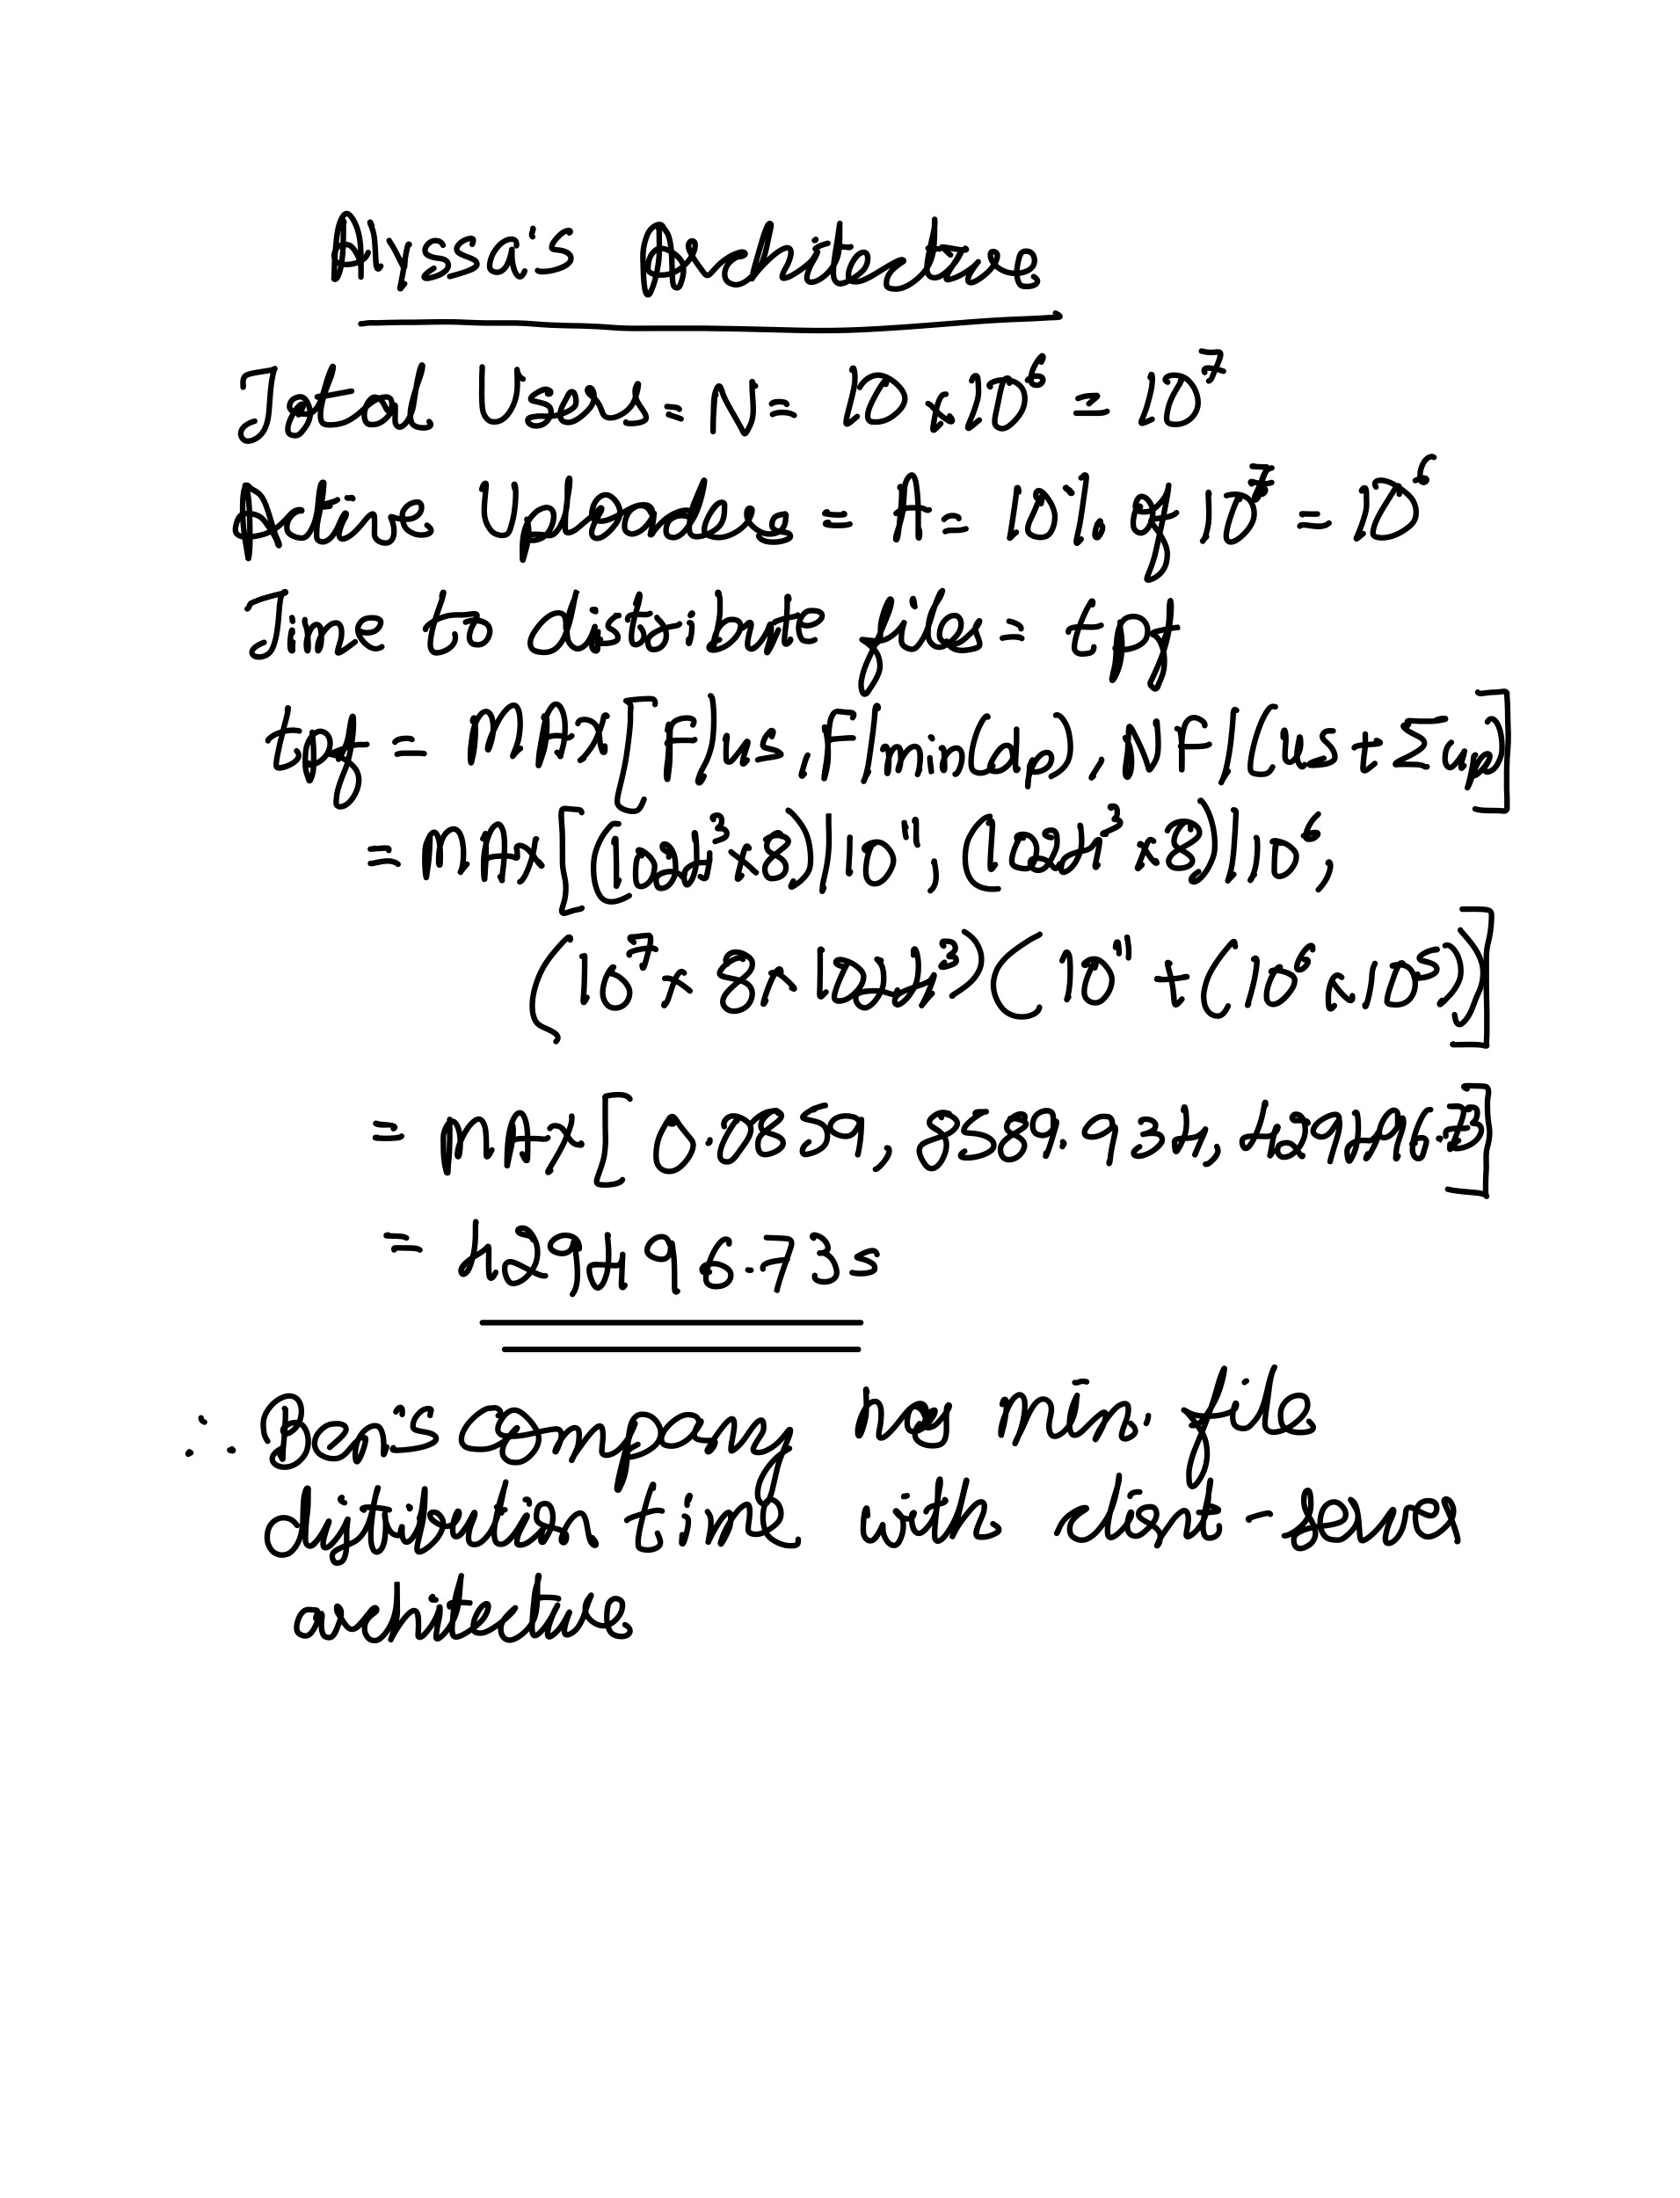 Alyssa's Architecture
Total Users = N = 10 × 10⁶ = 10⁷
Active Uploaders = A = 10% of 10⁷ = 10⁶
Time to distribute file = tpf
tpf = MAX [F/us, F/min(dp), NF/(us + Σup)]
= MAX [(1024³ × 8)/10¹¹, (1024³ × 8)/10⁶,
(10⁷ × 8 × 1024³)(10¹¹ + (10⁶ × 10⁵))]
= MAX [0.0859, 8589.934, 429496.73]
= 429496.73s
∴ Ben's company has min. file
distribution time with client-server
architecture